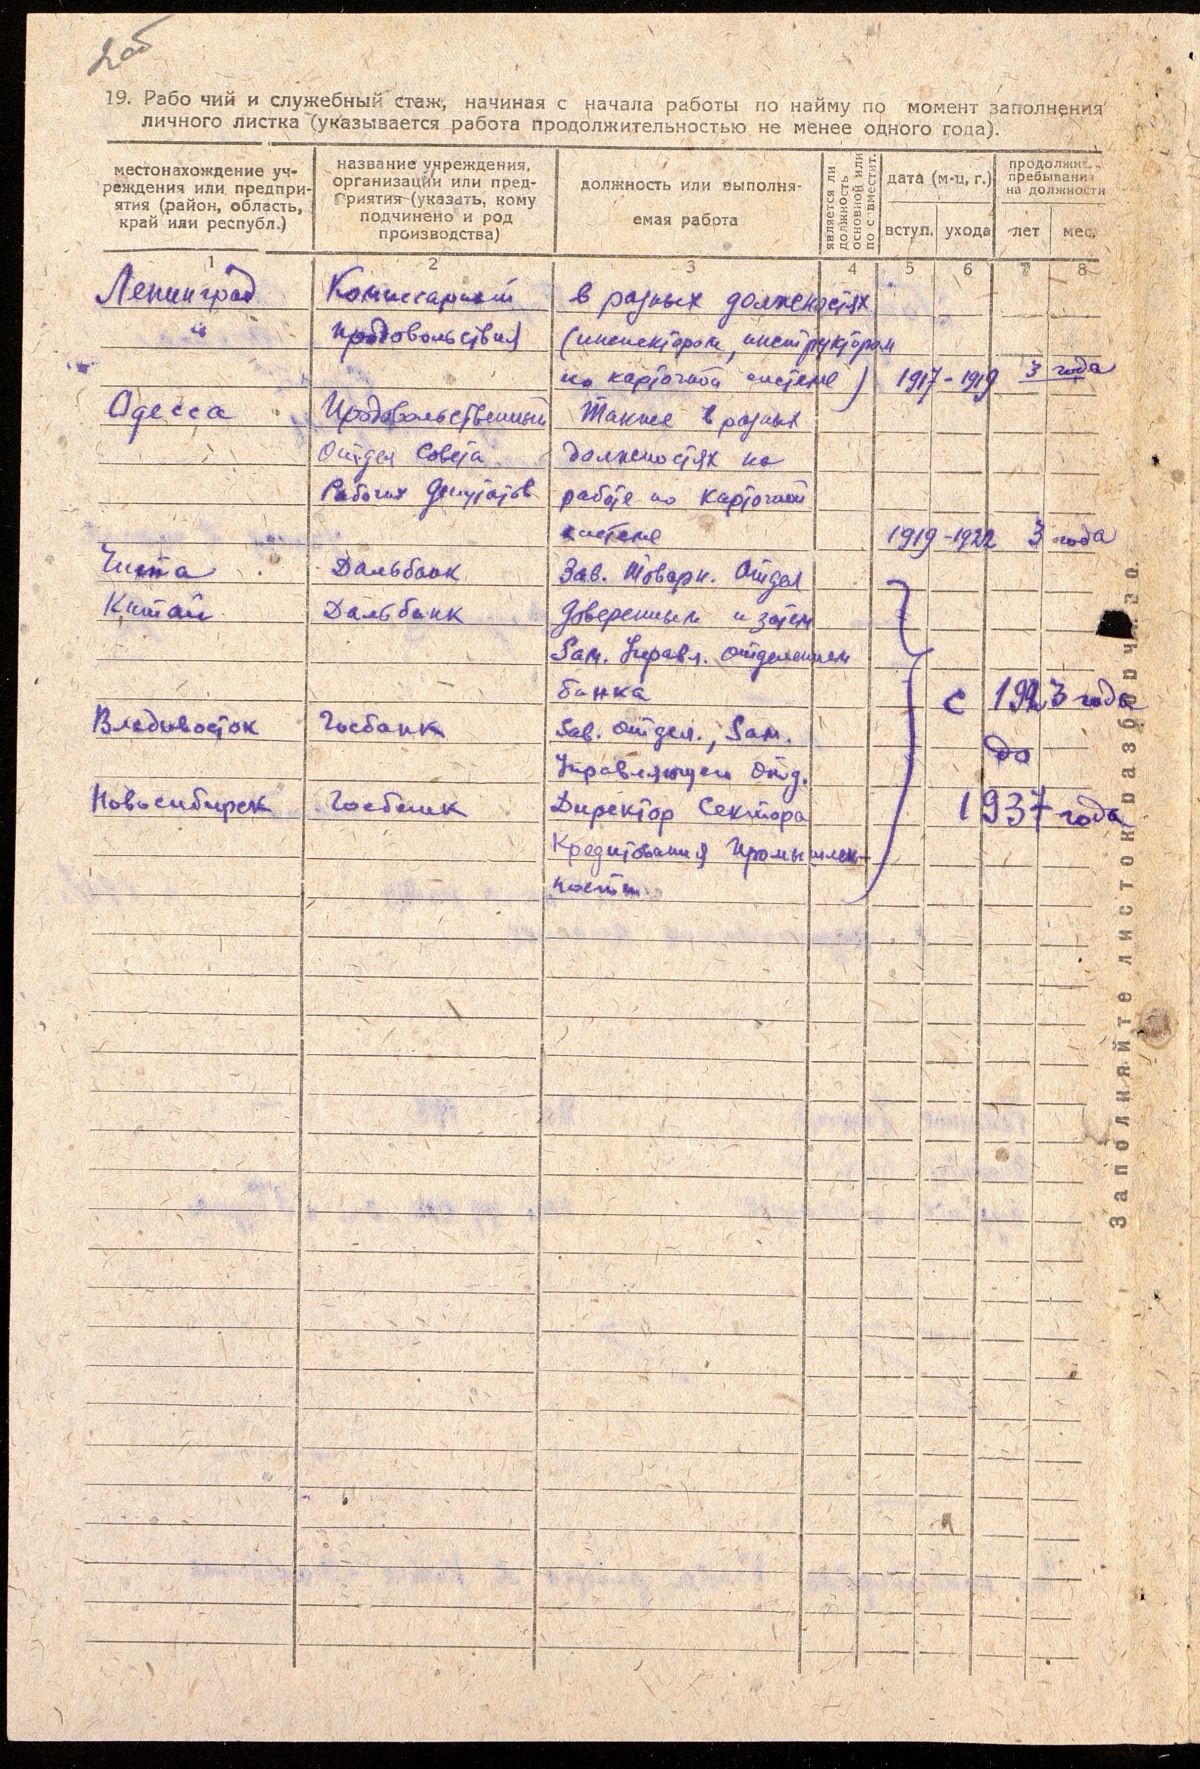 2об
19. Рабо чий и служебный стаж, начиная с начала работы по найму по момент заполнения
личного листка (указывается работа продолжительностью не менее одного года).
местонахождение уч-
реждения или предпри-
ятия (район, область,
край или республ.)
название учреждения,
организации или пред-
приятия (указать, кому
подчинено и род
производства)
должность или выполня-
емая работа
является ли
должность
основной или
по совместит.
дата (м-ц, г.)
вступ. ухода
продолжит.
пребывания
на должности
лет мес.
1 2 3 4 5 6 7 8
Ленинград Комиссариат в разных должностях
" продовольствия (инспектором, инструктором
по карточной системе) 1917-1919 3 года
Одесса Продовольственный Также в разных
Отдел Совета должностях по
Рабочих Депутатов работе по карточной
системе 1919-1922 3 года
Чита Дальбанк Зав. Товарн. Отдел
Китай Дальбанк Доверенным и затем
Зам. Управл. отделением
банка с 1923 года
Владивосток Госбанк Зав. отдел., Зам. до
Управляющего Отд.
Новосибирск Госбанк Директор Сектора 1937 года
Кредитования Промышлен-
ности
Заполняйте листок разборчиво.